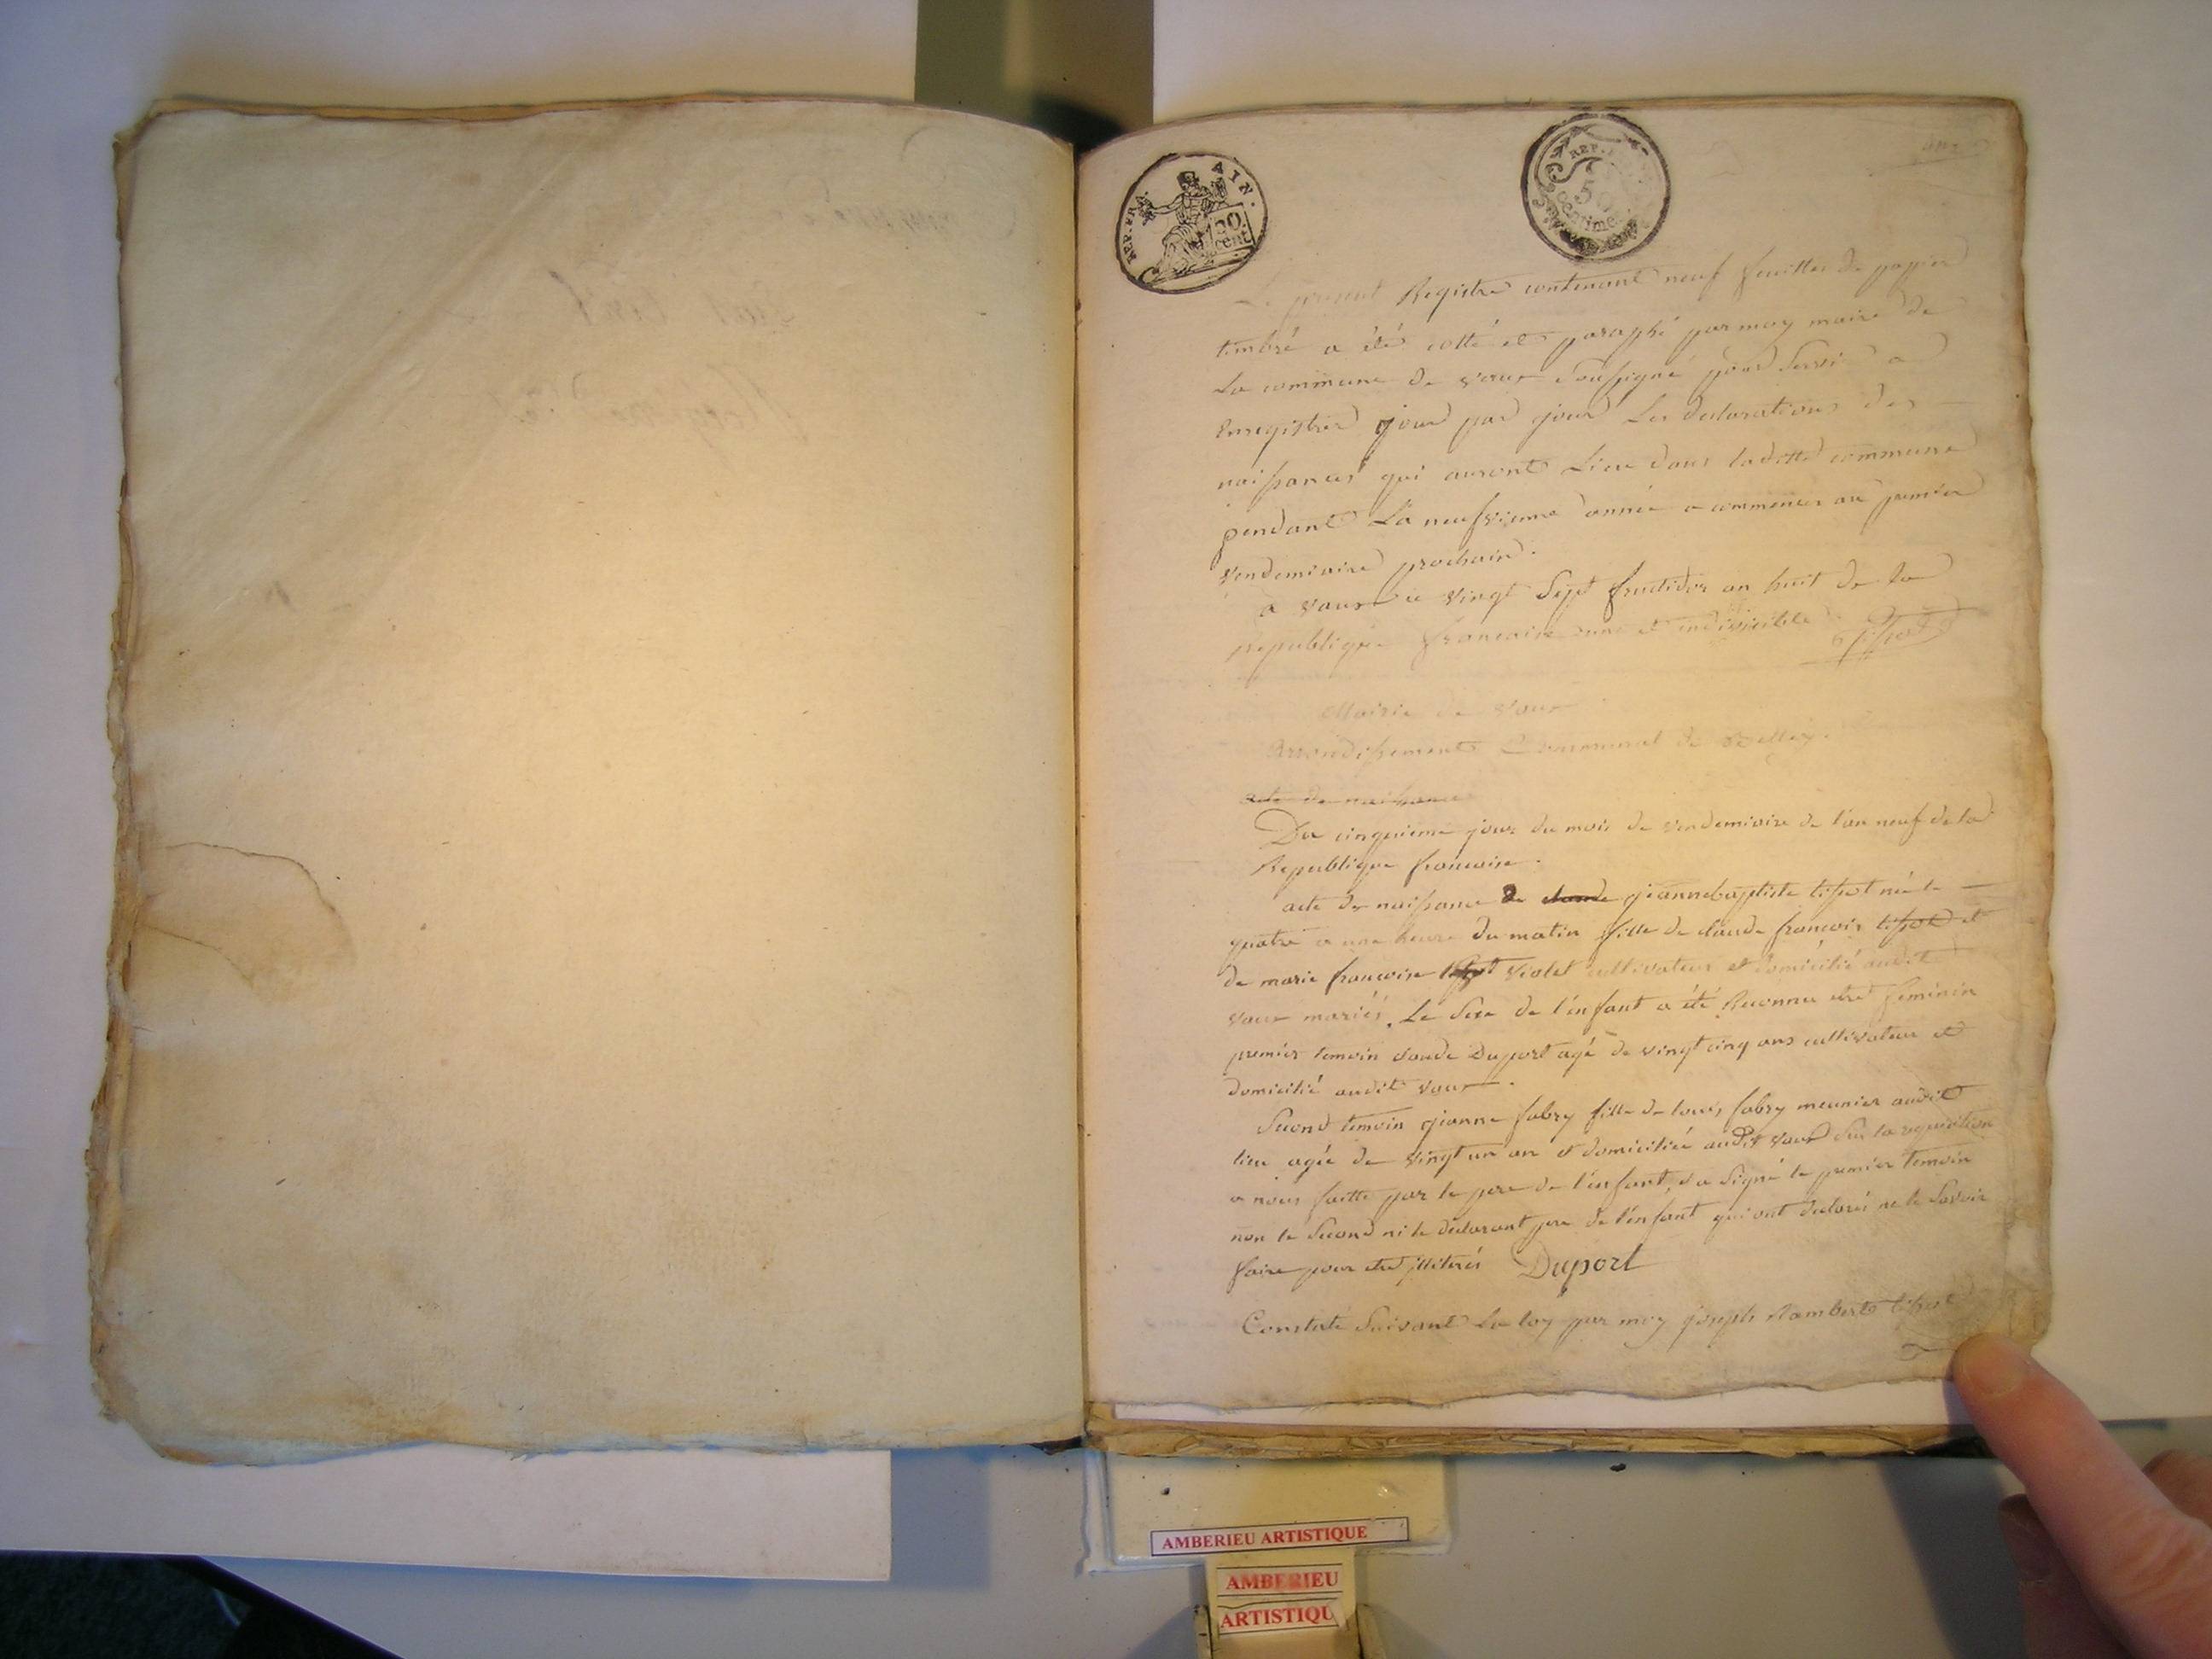 REP. FRA. AIN.
120. cent
REP.
50
Centime
an 9
Le present Registre contenant neuf feuilles de papier
timbré a été cotté et paraphé par moy maire de
La commune de vaux soussigné pour servir a
Enregistrer jour par jour Les declarations des
naissances qui auront Lieu dans laditte commune
pendant La neufvieme année a commencer au premier
vendemiaire prochain.
a vaux ce vingt sept fructidor an huit de la
republique francaise une et indivisible tissot
Mairie de vaux
Arrondissement Communal de Belley.
acte de naissance
Du cinquieme jour du mois de vendemiaire de l'an neuf de la
Republique francaise.
acte de naissance de claude jeannebaptiste tissot née le
quatre a une heure du matin fille de claude francois tissot et
de marie francoise violet cultivateur et domicilié audit
vaux mariés. Le sexe de l'enfant a été Reconnu etre feminin
premier temoin claude Duport agé de vingt cinq ans cultivateur et
domicilié audit vaux.
second temoin jeanne fabry fille de louis fabry meunier audit
lieu agée de vingt un an et domiciliée audit vaux sur la requisition
a nous faitte par le pere de l'enfant, et a signé le premier temoin
non le second ni le déclarant pere de l'enfant qui ont declarés ne le savoir
faire pour etre illiterés Duport
Constaté suivant la loy par moy joseph Rambert tissot
AMBERIEU ARTISTIQUE
AMBERIEU
ARTISTIQU